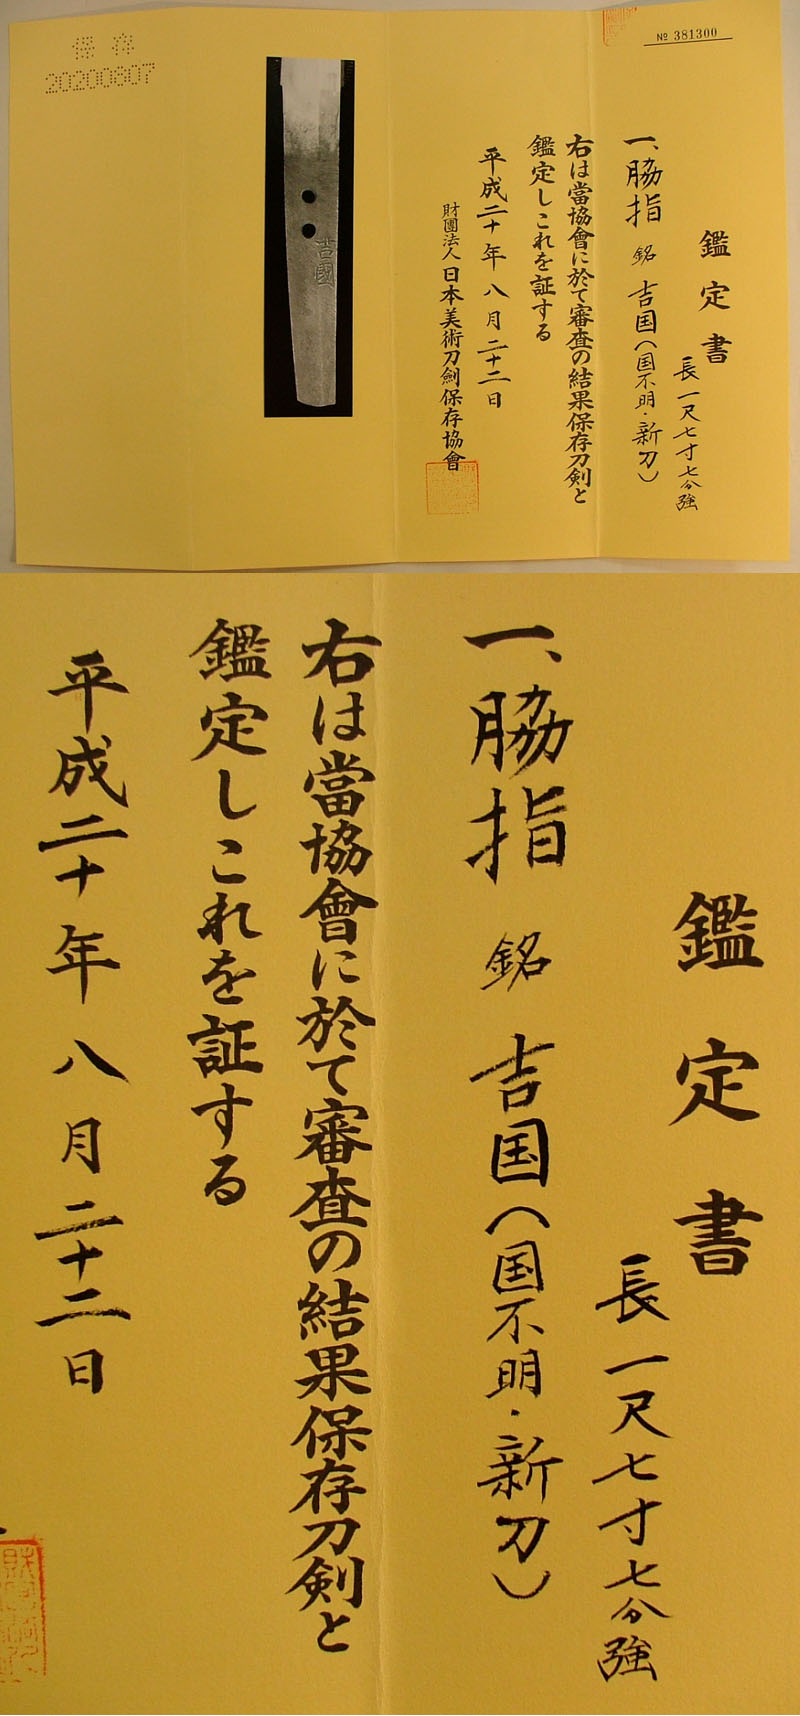 保存
20200807
№ 381300
鑑定書
長一尺七寸七分強
一、脇指 銘 吉国(国不明・新刀)
右は當協會に於て審査の結果保存刀剣と
鑑定しこれを証する
平成二十年八月二十二日
財團法人日本美術刀劍保存協會
吉國
鑑定書
長一尺七寸七分強
一、脇指 銘 吉国(国不明・新刀)
右は當協會に於て審査の結果保存刀剣と
鑑定しこれを証する
平成二十年八月二十二日